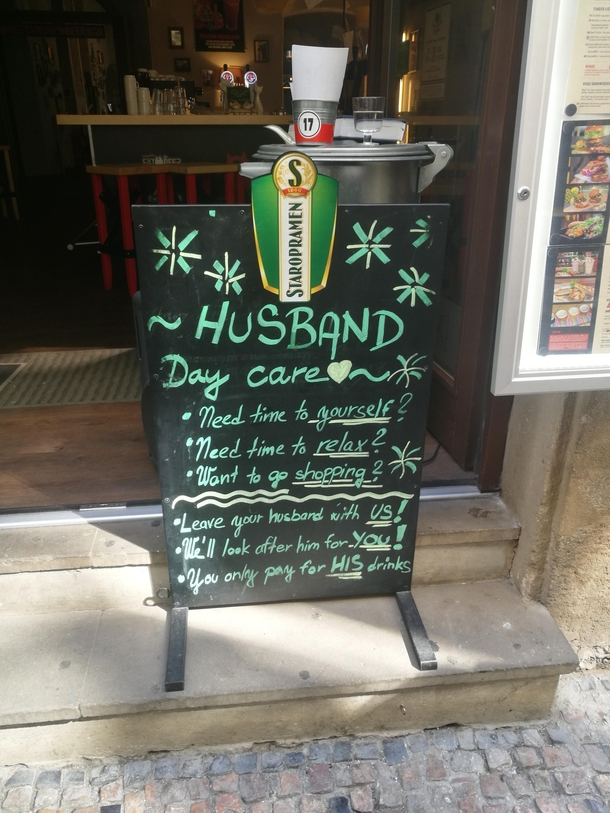 17
S
STAROPRAMEN
~ HUSBAND
Day care ~
• Need time to yourself?
• Need time to relax?
• Want to go shopping?
• Leave your husband with US!
• We'll look after him for YOU!
• You only pay for HIS drinks